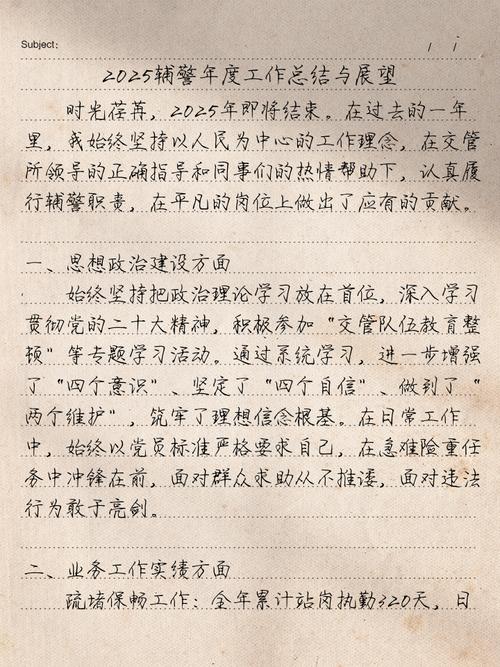 Subject:
/ /
2025辅警年度工作总结与展望
时光荏苒，2025年即将结束。在过去的一年
里，我始终坚持以人民为中心的工作理念，在交管
所领导的正确指导和同事们的热情帮助下，认真履
行辅警职责，在平凡的岗位上做出了应有的贡献。
一、思想政治建设方面
始终坚持把政治理论学习放在首位，深入学习
贯彻党的二十大精神，积极参加“交管队伍教育整
顿”等专题学习活动。通过系统学习，进一步增强
了“四个意识”、坚定了“四个自信”、做到了“
两个维护”，筑牢了理想信念根基。在日常工作
中，始终以党员标准严格要求自己，在急难险重任
务中冲锋在前，面对群众求助从不推诿，面对违法
行为敢于亮剑。
二、业务工作实绩方面
疏堵保畅工作：全年累计站岗执勤320天，日